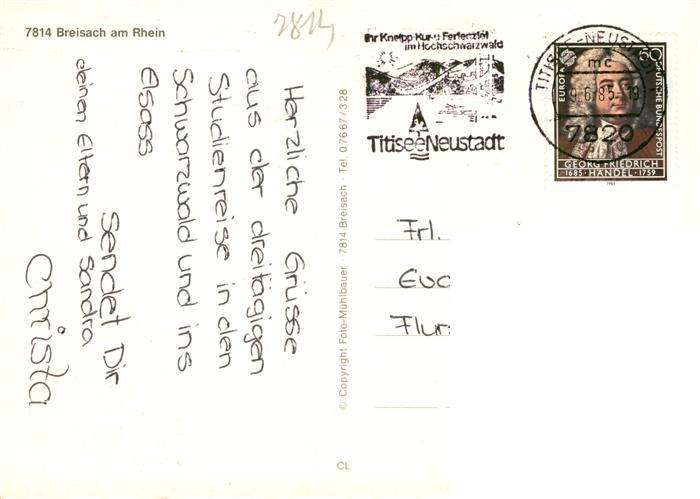 7814 Breisach am Rhein
7814
Herzliche Grüsse
aus der dreitägigen
Studienreise in den
Schwarzwald und ins
Elsass
sendet Dir
deinen Eltern und Sandra
Christa
© Copyright Foto-Mühlbauer · 7814 Breisach · Tel. 07667/328
CL
Ihr Kneipp-Kur-u Ferienziel
im Hochschwarzwald
Titisee Neustadt
TITISEE-NEUST
mc
.6.85-18
7820
EUROPA
60
DEUTSCHE BUNDESPOST
GEORG FRIEDRICH
1685 · HÄNDEL · 1759
Frl.